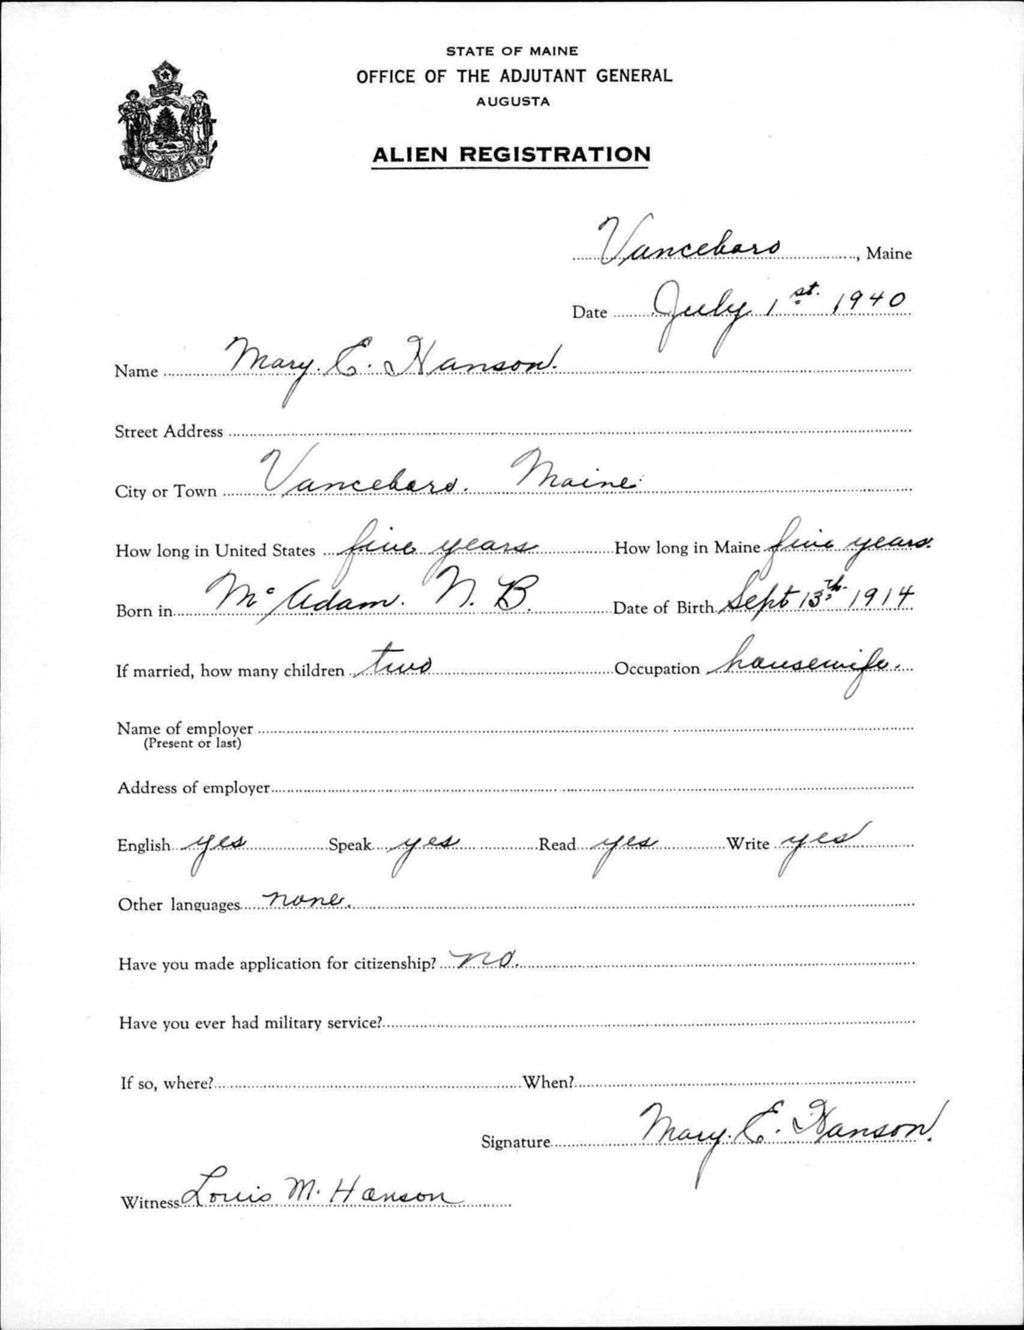 STATE OF MAINE
OFFICE OF THE ADJUTANT GENERAL
AUGUSTA
ALIEN REGISTRATION
MAINE
Vanceboro, Maine
Date July 1st. 1940
Name Mary. E. Hanson.
Street Address
City or Town Vanceboro. Maine.
How long in United States five years How long in Maine five years.
Born in Mc Adam. N. B. Date of Birth Sept 13th. 1914
If married, how many children two Occupation housewife.
Name of employer
(Present or last)
Address of employer
English yes Speak yes Read yes Write yes
Other languages none.
Have you made application for citizenship? no.
Have you ever had military service?
If so, where? When?
Signature Mary. E. Hanson.
Witness Louis M. Hanson